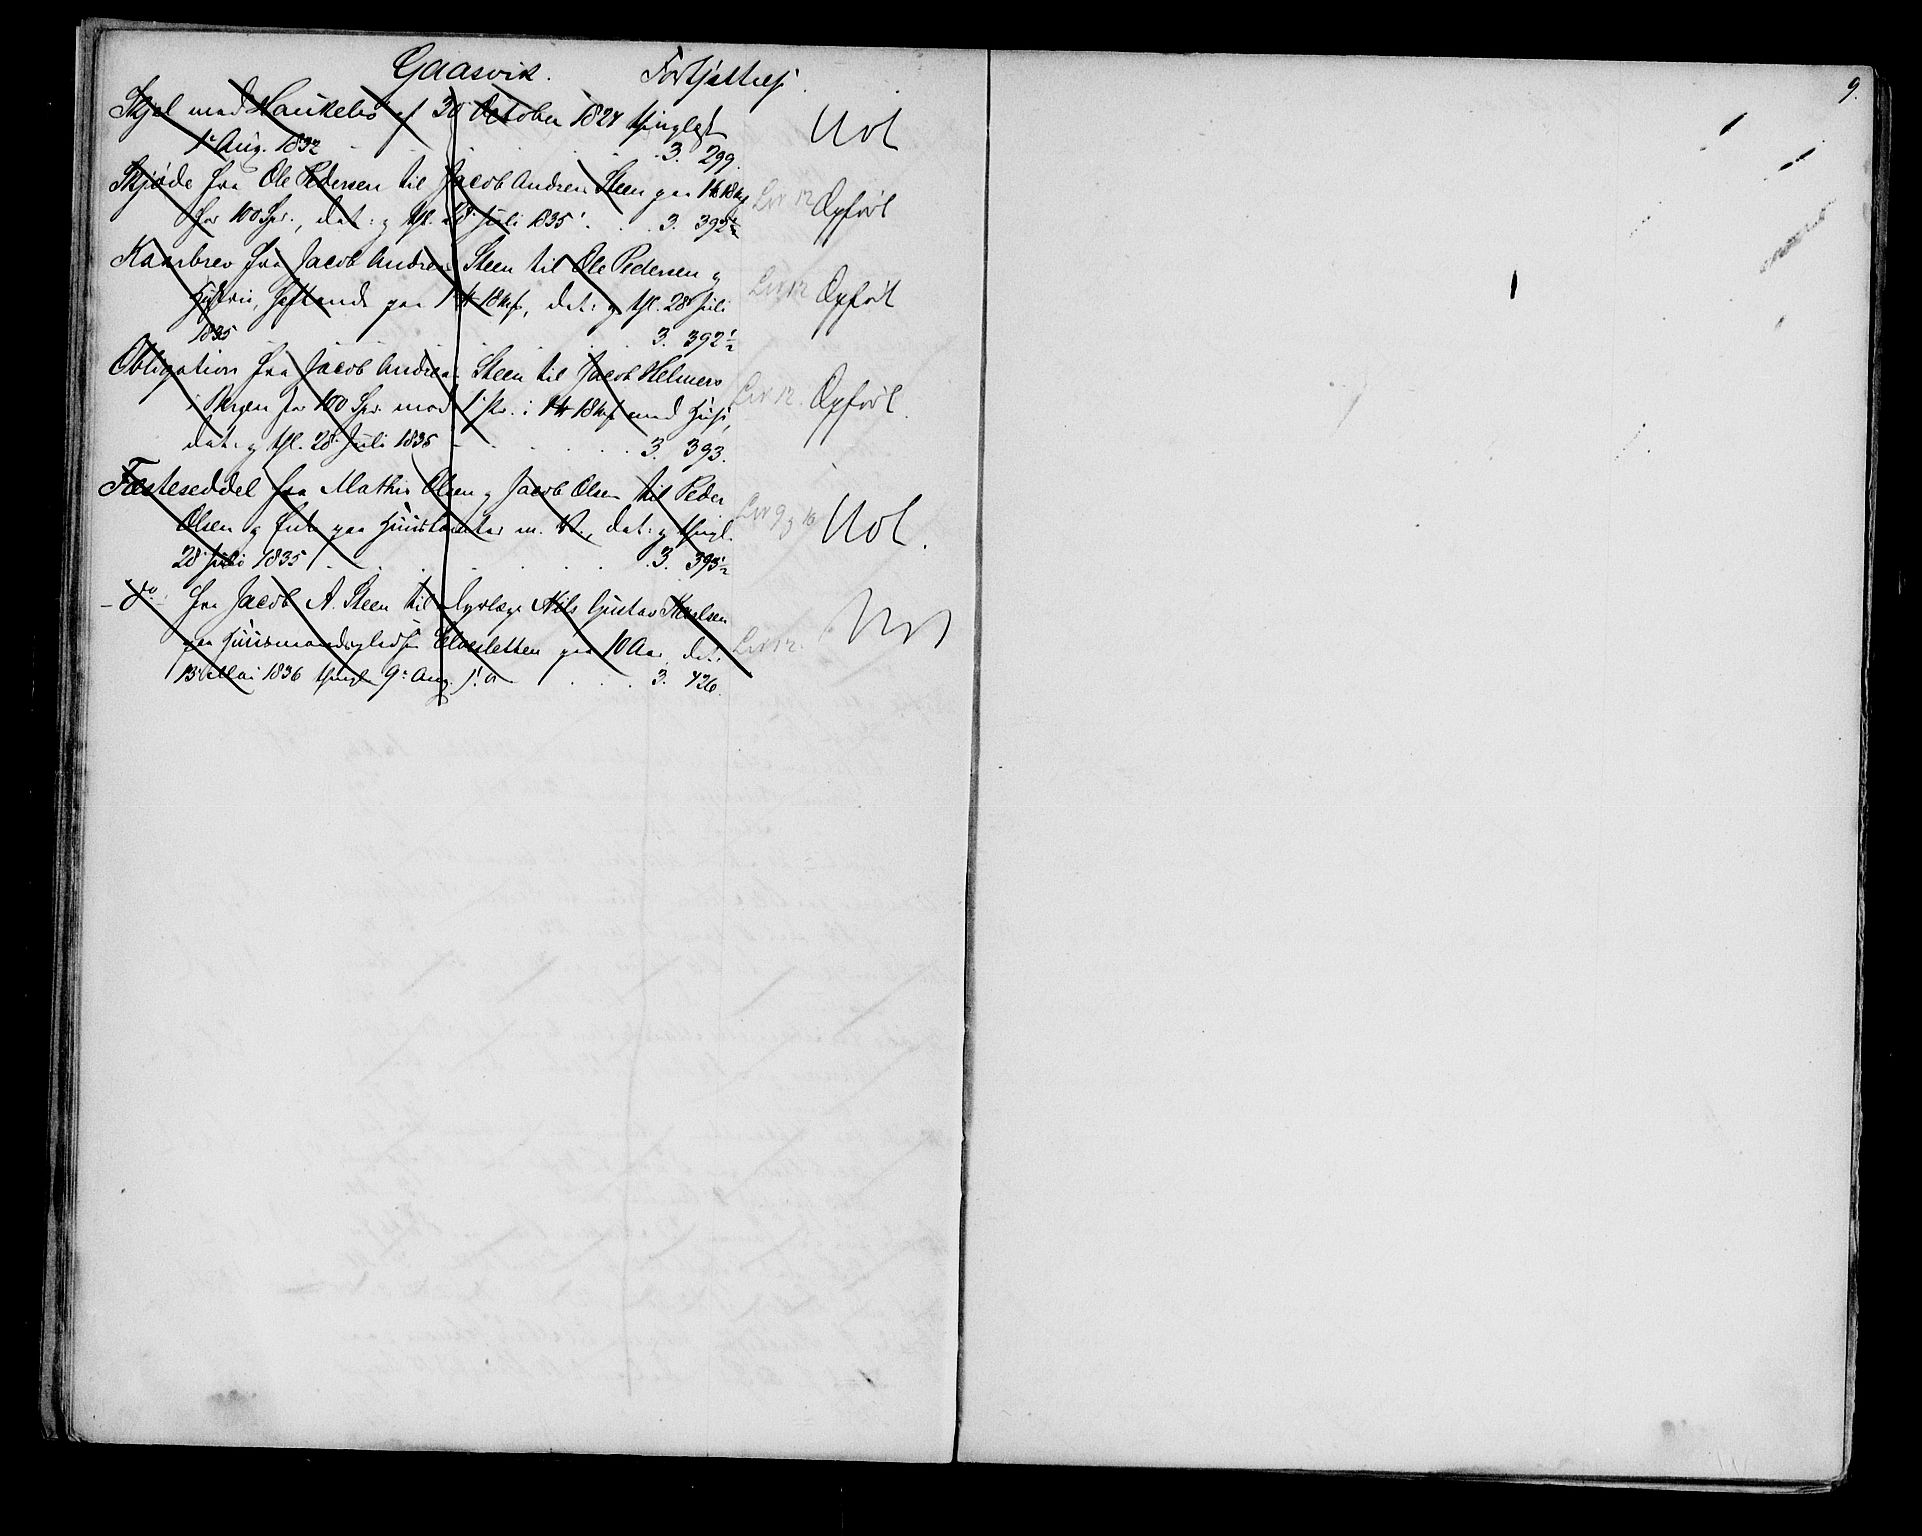 Gaasvik. Fortsættelse.
Skjel mod Haukebø af 30 October 1824 thinglæst
1ste Aug. 1832 3. 299. Not
Skjøde fra Ole Pedersen til Jacob Andreas Steen paa 1 18
for 100 Spr., dat: og thl. 28 Juli 1835 3. 392½ Lnr 12 Opført
Kaarbrev fra Jacob Andreas Steen til Ole Pedersen og
Hustru, heftende paa 1 18 , dat: og thl. 28 Juli
1835 3. 392½ Lnr 12 Opført
Obligation fra Jacob Andreas Steen til Jacob Helmers
i Bergen for 100 Spr. mod 1 Pr. i 1 18 med Huse,
dat: og thl. 28 Juli 1835 3. 393. Lnr 12. Opført.
Festeseddel fra Mathis Olsen og Jacob Olsen til Peder
Olsen og Enke paa Huustomter m. V., dat: og thingl.
28 Juli 1835 3. 393½ Lnr 9 og 16 Not.
- do - fra Jacob A. Steen til Nils Gustav Karlsen
paa Huusmandspladsen Elvesletten paa 10 Aar, dat:
13 Mai 1836 thingl. 9 Aug. s. a. 3. 426. Lnr 12. Not
9.